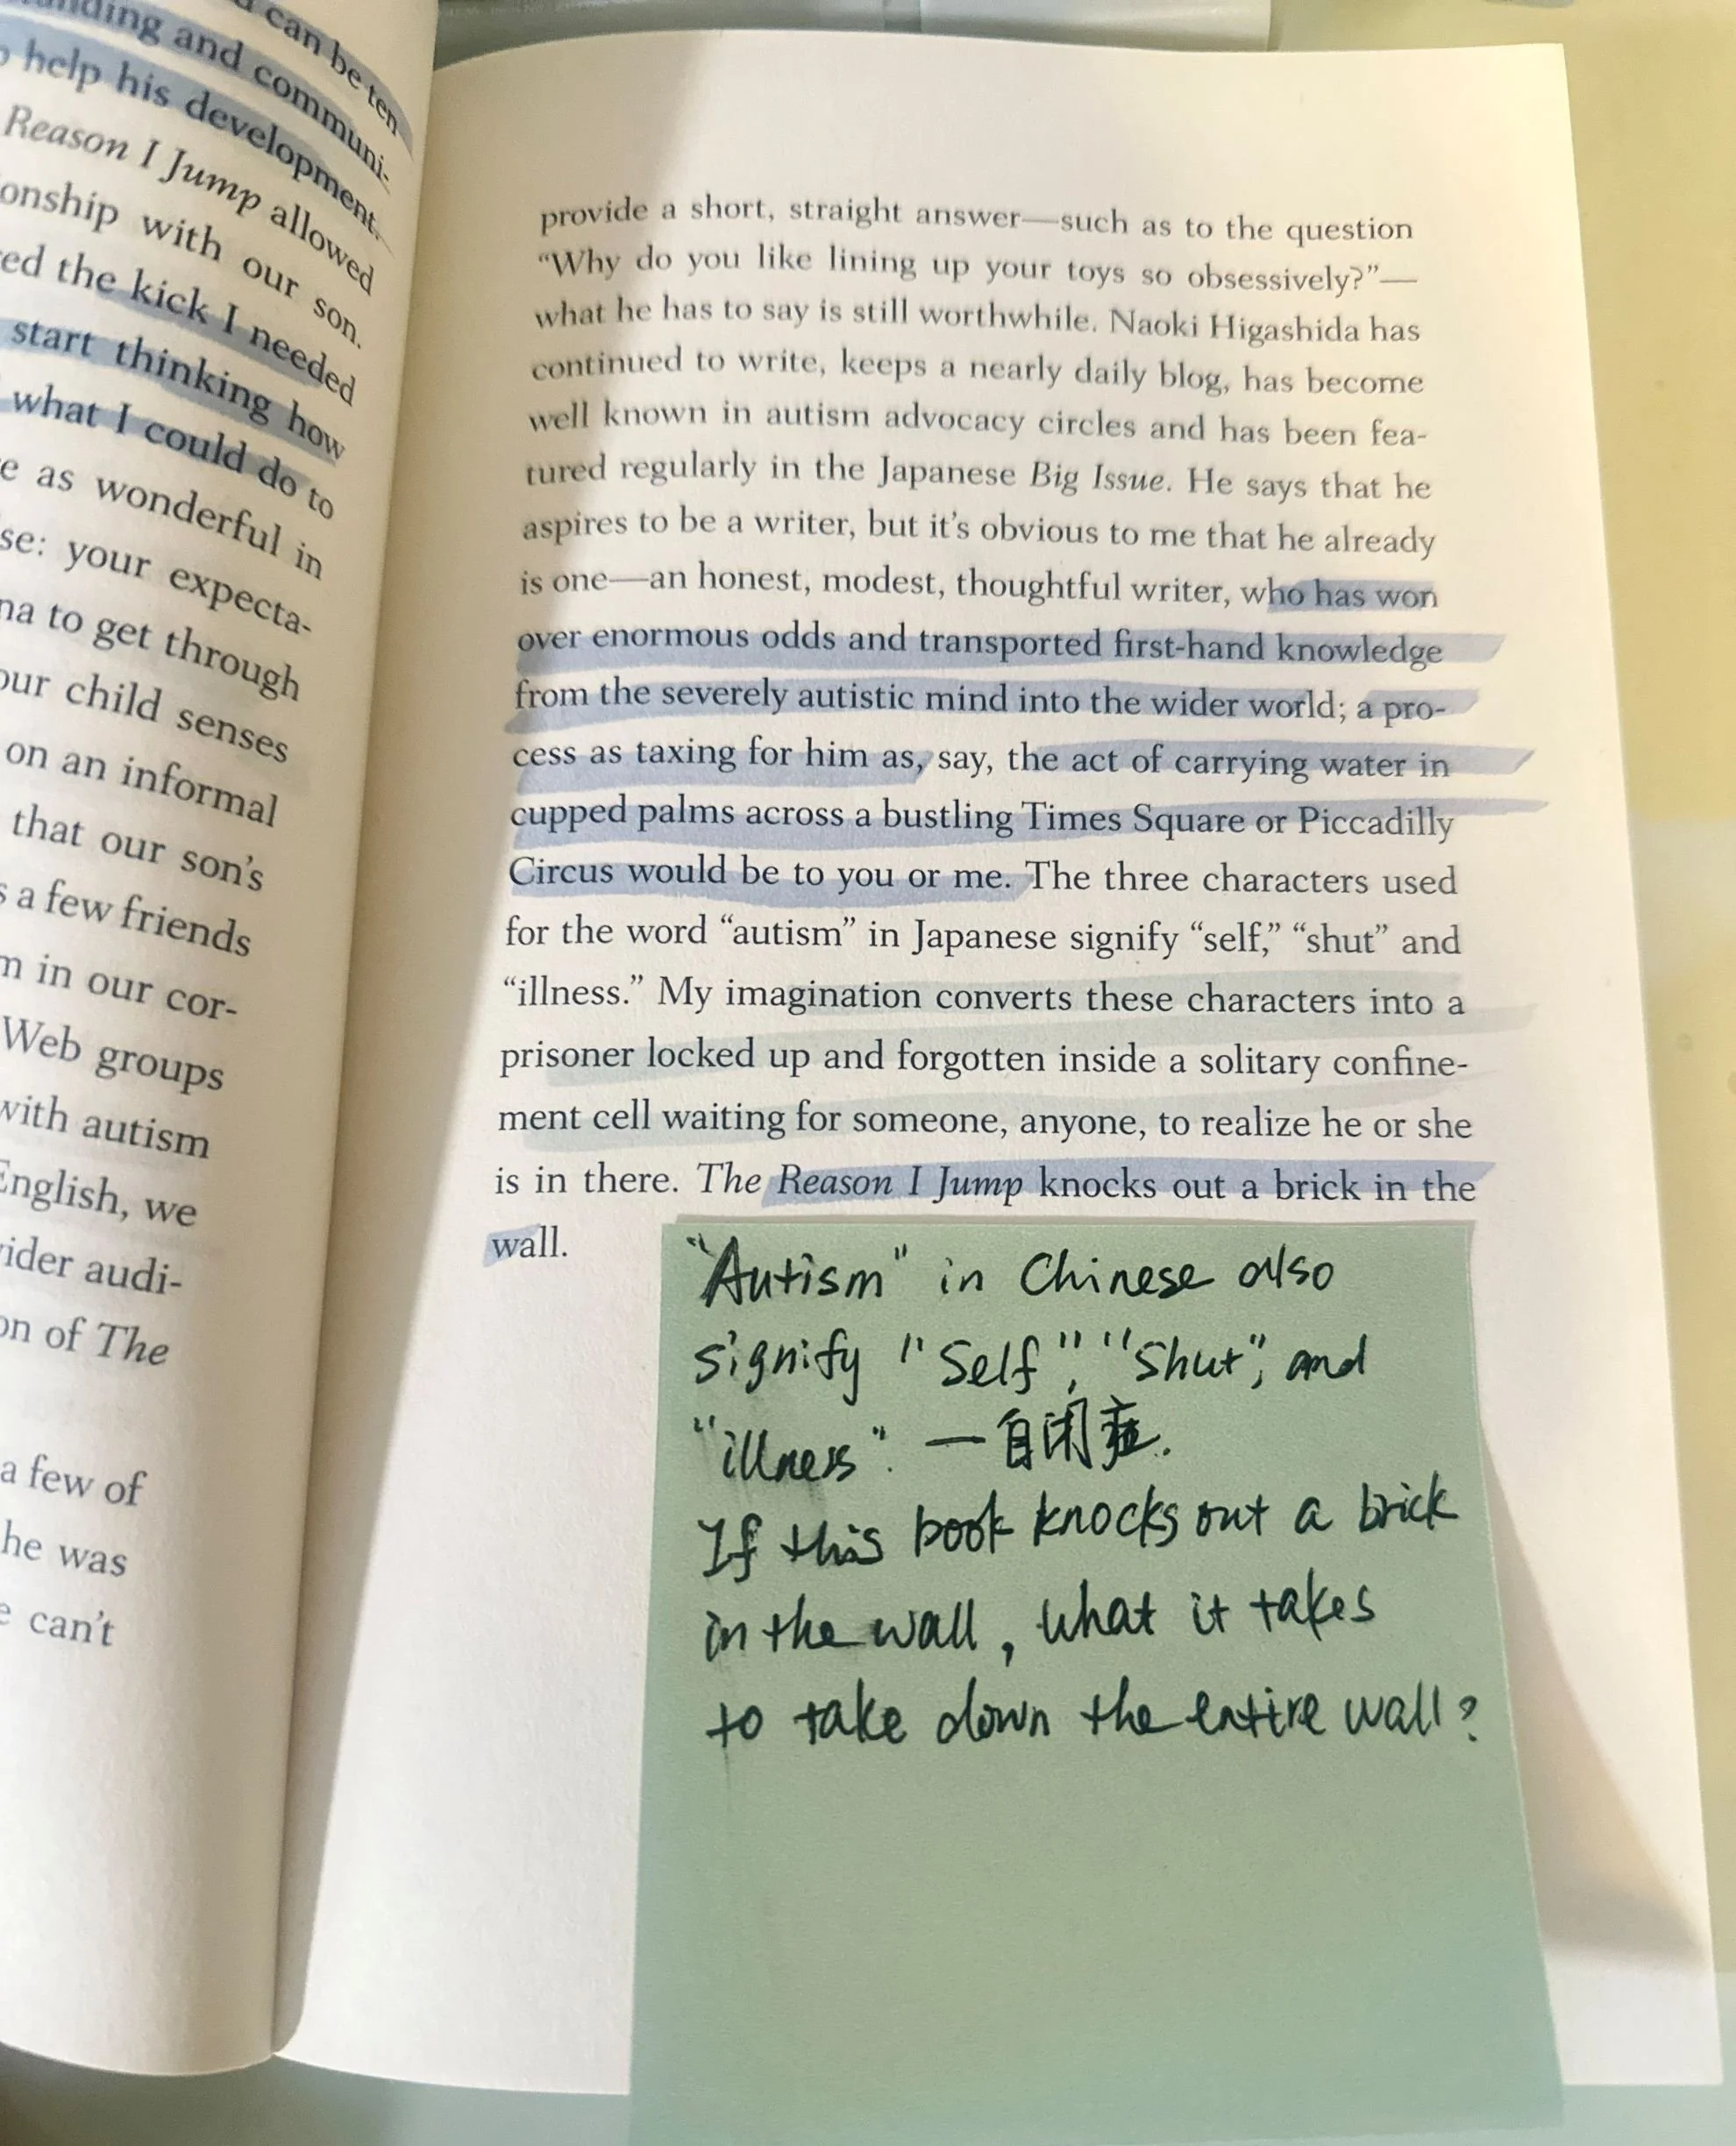 can be ten
anding and communi-
help his development.
Reason I Jump allowed
onship with our son.
ed the kick I needed
start thinking how
what I could do to
e as wonderful in
se: your expecta-
na to get through
our child senses
on an informal
that our son's
s a few friends
m in our cor-
Web groups
with autism
English, we
ider audi-
on of The
a few of
he was
e can't
provide a short, straight answer—such as to the question
“Why do you like lining up your toys so obsessively?”—
what he has to say is still worthwhile. Naoki Higashida has
continued to write, keeps a nearly daily blog, has become
well known in autism advocacy circles and has been fea-
tured regularly in the Japanese Big Issue. He says that he
aspires to be a writer, but it’s obvious to me that he already
is one—an honest, modest, thoughtful writer, who has won
over enormous odds and transported first-hand knowledge
from the severely autistic mind into the wider world; a pro-
cess as taxing for him as, say, the act of carrying water in
cupped palms across a bustling Times Square or Piccadilly
Circus would be to you or me. The three characters used
for the word “autism” in Japanese signify “self,” “shut” and
“illness.” My imagination converts these characters into a
prisoner locked up and forgotten inside a solitary confine-
ment cell waiting for someone, anyone, to realize he or she
is in there. The Reason I Jump knocks out a brick in the
wall.
"Autism" in Chinese also
signify "Self", "Shut", and
"illness". — 自闭症.
If this book knocks out a brick
in the wall, what it takes
to take down the entire wall?